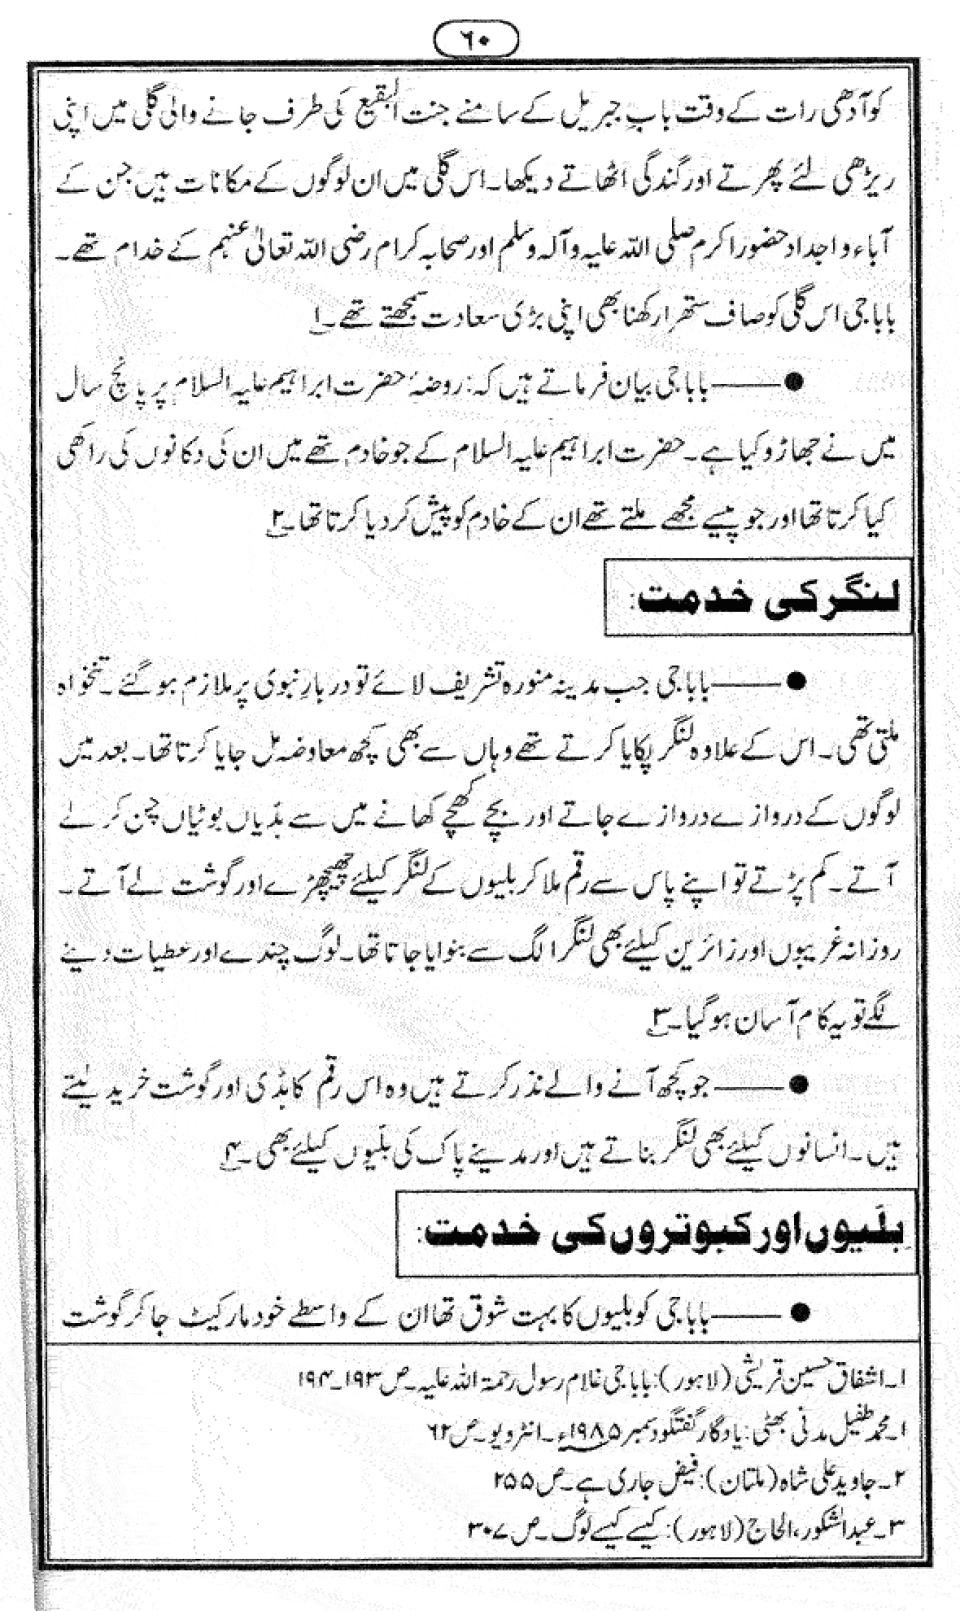 ۶۰
کو آدھی رات کے وقت بابِ جبریل کے سامنے جنت البقیع کی طرف جانے والی گلی میں اپنی
ریڑھی لئے پھرتے اور گندگی اٹھاتے دیکھا۔ اس گلی میں ان لوگوں کے مکانات ہیں جن کے
آباء و اجداد حضور اکرم صلی اللہ علیہ وآلہ وسلم اور صحابہ کرام رضی اللہ تعالیٰ عنہم کے خدام تھے۔
بابا جی اس گلی کو صاف ستھرا رکھنا بھی اپنی بڑی سعادت سمجھتے تھے۔ ۱
●——— بابا جی بیان فرماتے ہیں کہ: روضۂ حضرت ابراہیم علیہ السلام پر پانچ سال
میں نے جھاڑو کیا ہے۔ حضرت ابراہیم علیہ السلام کے جو خادم تھے میں ان کی دکانوں کی راکھی
کیا کرتا تھا اور جو پیسے مجھے ملتے تھے ان کے خادم کو پیش کر دیا کرتا تھا۔ ۲
لنگر کی خدمت:
●——— بابا جی جب مدینہ منورہ تشریف لائے تو دربارِ نبوی پر ملازم ہو گئے۔ تنخواہ
ملتی تھی۔ اس کے علاوہ لنگر پکایا کرتے تھے وہاں سے بھی کچھ معاوضہ مل جایا کرتا تھا۔ بعد میں
لوگوں کے دروازے دروازے جاتے اور بچے کھچے کھانے میں سے ہڈیاں بوٹیاں چن کر لے
آتے۔ کم پڑتے تو اپنے پاس سے رقم ملا کر بلیوں کے لنگر کیلئے چھیچھڑے اور گوشت لے آتے۔
روزانہ غریبوں اور زائرین کیلئے بھی لنگر الگ سے بنوایا جاتا تھا۔ لوگ چندے اور عطیات دینے
لگے تو یہ کام آسان ہو گیا۔ ۳
●——— جو کچھ آنے والے نذر کرتے ہیں وہ اس رقم کا ہڈی اور گوشت خرید لیتے
ہیں۔ انسانوں کیلئے بھی لنگر بناتے ہیں اور مدینے پاک کی بلّیوں کیلئے بھی۔ ۴
بلّیوں اور کبوتروں کی خدمت:
●——— بابا جی کو بلیوں کا بہت شوق تھا ان کے واسطے خود مارکیٹ جا کر گوشت
۱۔ اشفاق حسین قریشی (لاہور): بابا جی غلام رسول رحمۃ اللہ علیہ۔ ص ۱۹۳۔۱۹۴
۱۔ محمد طفیل مدنی بھٹی: یادگار گفتگو دسمبر ۱۹۸۵ء۔ انٹرویو۔ ص ۶۲
۲۔ جاوید علی شاہ (ملتان): فیض جاری ہے۔ ص ۲۵۵
۳۔ عبدالشکور، الحاج (لاہور): کیسے کیسے لوگ۔ ص ۳۰۷